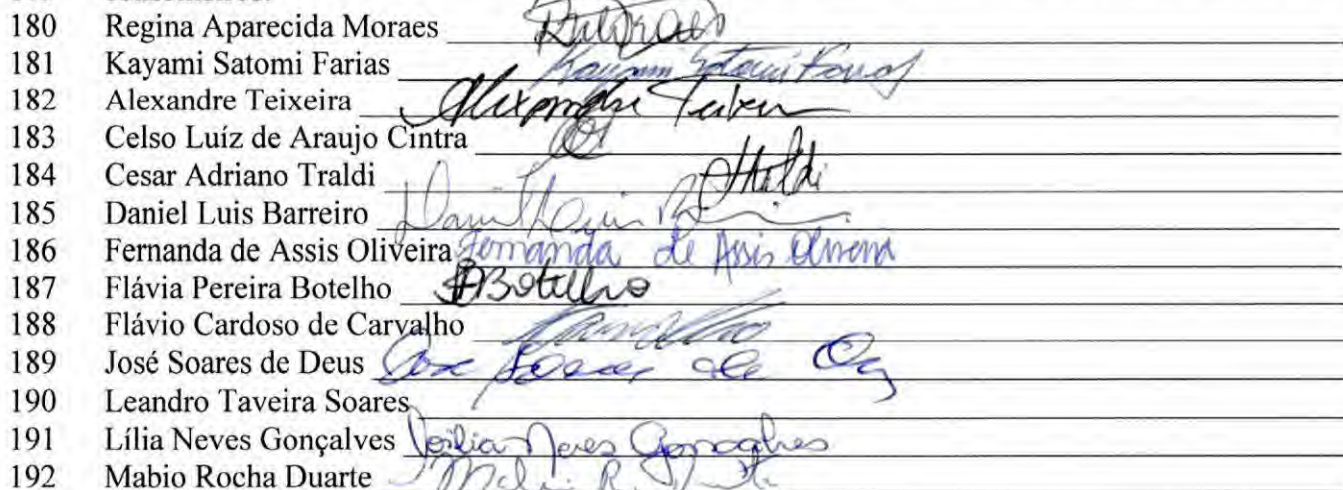 180 Regina Aparecida Moraes
181 Kayami Satomi Farias Kayami Satomi Farias
182 Alexandre Teixeira Alexandre Teixeira
183 Celso Luíz de Araujo Cintra
184 Cesar Adriano Traldi CTraldi
185 Daniel Luis Barreiro Daniel Luis
186 Fernanda de Assis Oliveira Fernanda de Assis Oliveira
187 Flávia Pereira Botelho FPBotelho
188 Flávio Cardoso de Carvalho
189 José Soares de Deus José Soares de
190 Leandro Taveira Soares
191 Lília Neves Gonçalves Lília Neves Gonçalves
192 Mabio Rocha Duarte